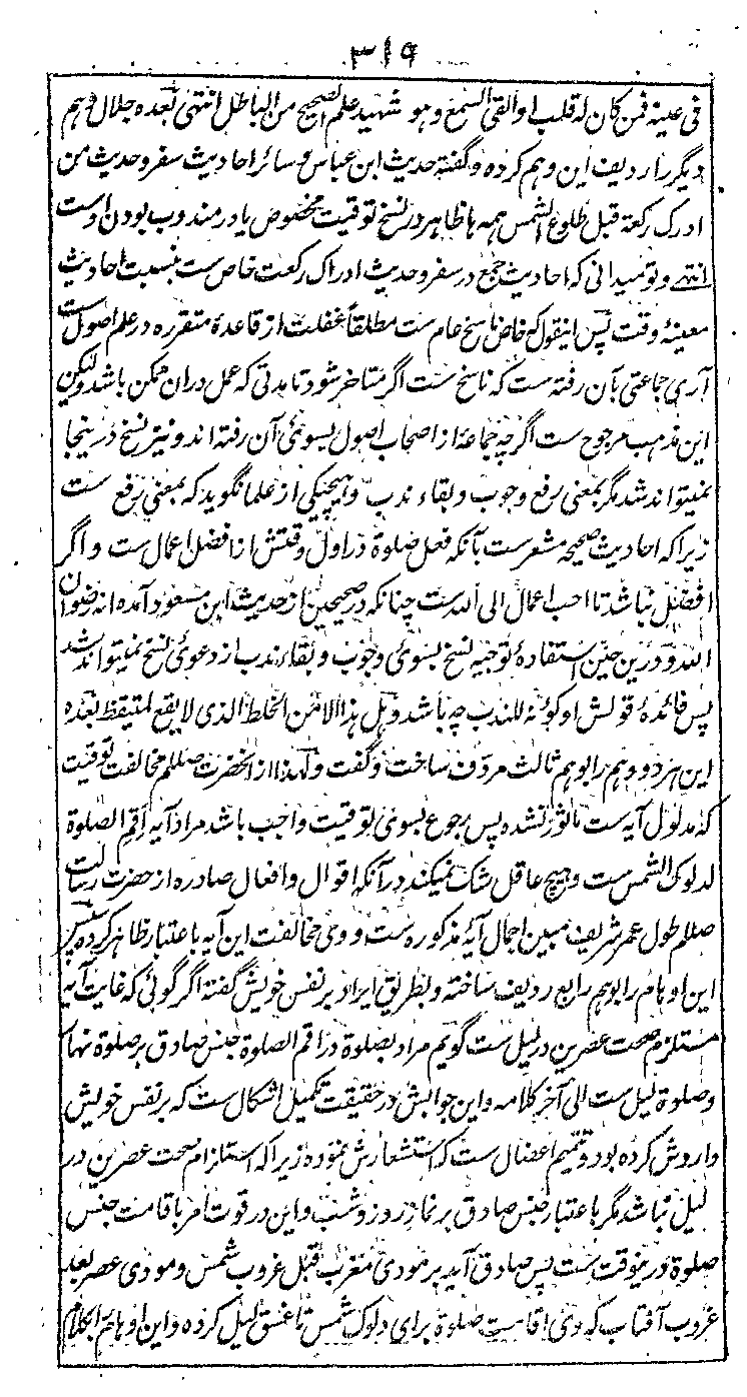 ۳۱۹
فی عینه فمن کان له قلب او القی السمع و هو شهید علم الصحیح من الباطل انتهی بعده جلال وهم
دیگر را ردیف این وهم کرده و گفته حدیث ابن عباس و سائر احادیث سفر و حدیث من
ادرک رکعة قبل طلوع الشمس همه ها ظاهر در نسخ توقیت مخصوص یا در مندوب بودن اوست
انتهی و تو میدانی که احادیث جمع در سفر و حدیث ادراک رکعت خاص ست بنسبت احادیث
معینهٔ وقت پس اینقول که خاص ناسخ عام ست مطلقاً غفلت از قاعدهٔ متقرره در علم اصول ست
آری جماعتی بآن رفته ست که ناسخ ست اگر متاخر شود تا مدتی که عمل دران ممکن باشد ولیکن
این مذهب مرجوح ست اگرچه جماعهٔ از اصحاب اصول بسوئی آن رفته اند و نیز نسخ درینجا
نمیتواند شد مگر بمعنی رفع وجوب و بقاء ندب و هیچیکی از علما نگوید که بمعنی رفع ست
زیرا که احادیث صحیحه مشعرست بآنکه فعل صلوة در اول وقتش از افضل اعمال ست و اگر
افضل نباشد تا احب اعمال الی الله ست چنانکه در صحیحین از حدیث ابن مسعود آمده انه رضوان
الله و درین حین استفادهٔ توجیه نسخ بسوئی وجوب و بقاء ندب از دعوئ نسخ نمیتواند شد
پس فائدهٔ قولش او کونه للندب چه باشد و هل هذا الا من الخلط الذی لا یقع لمتیقظ بعده
این هر دو وهم را بوهم ثالث مردف ساخت و گفت و لهذا از آنحضرت صللم مخالفت توقیت
که مدلول آیه ست ماثور نشده پس رجوع بسوی توقیت واجب باشد مراد آیه اقم الصلوة
لدلوک الشمس ست و هیچ عاقل شک نمیکند در آنکه اقوال و افعال صادره از حضرت رسالت
صللم طول عمر شریف مبین اجمال آیهٔ مذکوره ست و وی مخالفت این آیه باعتبار ظاهر کرده پس
این اوهام را بوهم رابع ردیف ساخته و بطریق ایراد بر نفس خویش گفته اگر گوئی که غایت آیه
مستلزم صحت عصرین در لیل ست گویم مراد بصلوة در اقم الصلوة جنس صادق بر صلوة نهار
و صلوة لیل ست الی آخر کلامه و این جوابش در حقیقت تکمیل اشکال ست که بر نفس خویش
واردش کرده بود و تتمیم اعضال ست که استشعارش نموده زیرا که استلزام صحت عصرین در
لیل نباشد مگر باعتبار جنس صادق بر نماز روز و شب و این در قوت امر باقامت جنس
صلوة در یوقت ست پس صادق آید بر مودی مغرب قبل غروب شمس و مودی عصر بعد
غروب آفتاب که وی اقامت صلوة برای دلوک شمس تا غسق لیل کرده و این اوهام را بکلام